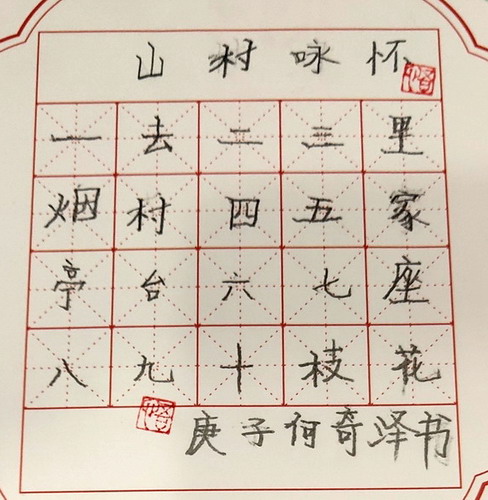 山村咏怀
一去二三里
烟村四五家
亭台六七座
八九十枝花
庚子何奇泽书